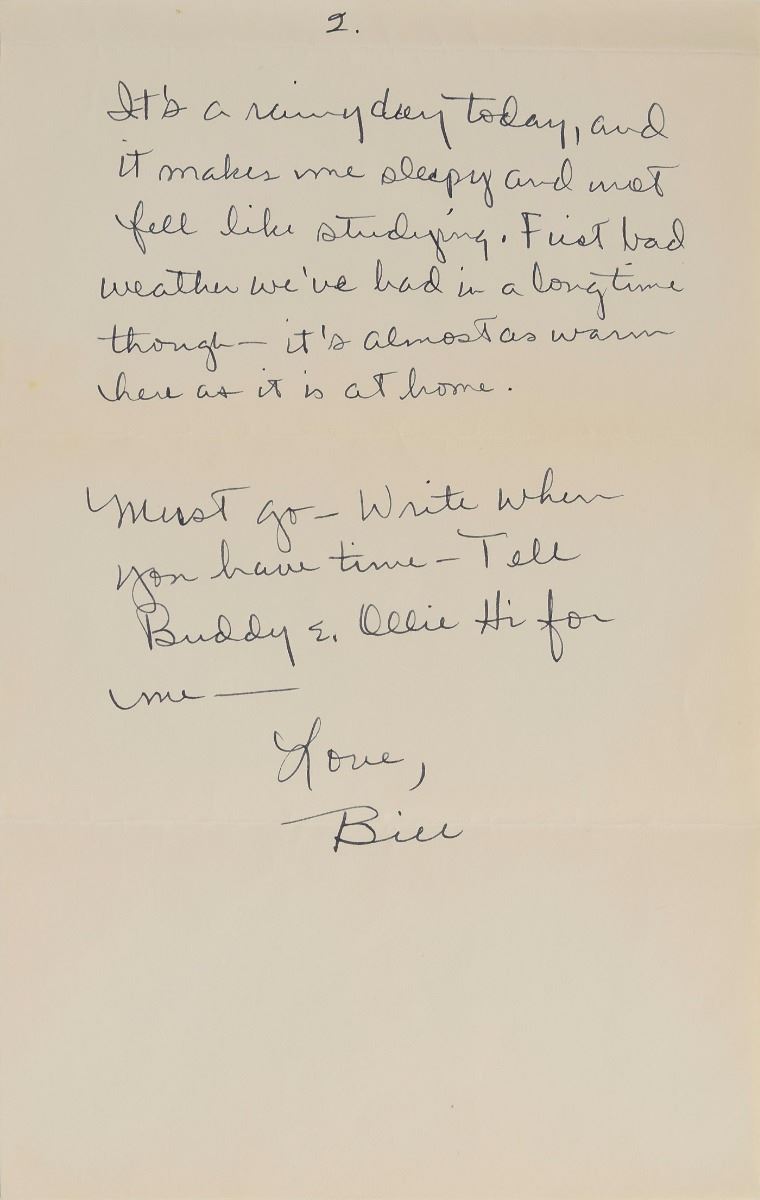 2.
It's a rainy day today, and
it makes me sleepy and not
fell like studying. First bad
weather we've had in a long time
though — it's almost as warm
here as it is at home.
Must go — Write when
you have time — Tell
Buddy & Ollie Hi for
me —
Love,
Bill